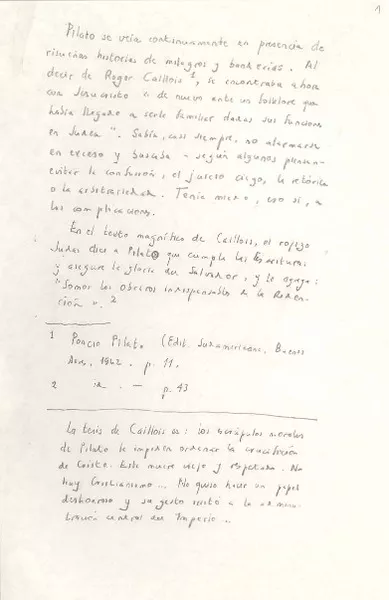 1
Pilato se veía continuamente en presencia de
risueñas historias de milagros y bonherías. Al
decir de Roger Caillois 1, se encontraba ahora
con Jesucristo "de nuevo ante un folklore que
había llegado a serle familiar dadas sus funciones
en Judea". Sabía, casi siempre, no alarmarse
en exceso y buscaba - según algunos piensan -
evitar la confusión, el juicio ciego, la retórica
o la arbitrariedad. Tenía miedo, eso sí, a
las complicaciones.
En el texto magnífico de Caillois, el rojizo
Judas dice a Pilato que cumpla las Escrituras
y asegure la gloria del Salvador, y le agrega:
"Somos los obreros indispensables de la Reden-
ción". 2
1 Poncio Pilato (Edit. Sudamericana, Buenos
Aires, 1962. p. 11.
2 id. - p. 43
La tesis de Caillois es: los escrúpulos morales
de Pilato le impiden ordenar la crucifixión
de Cristo. Este muere viejo y respetado. No
hay Cristianismo... No quiso hacer un papel
deshonroso y su gesto irritó a la adminis-
tración central del Imperio...